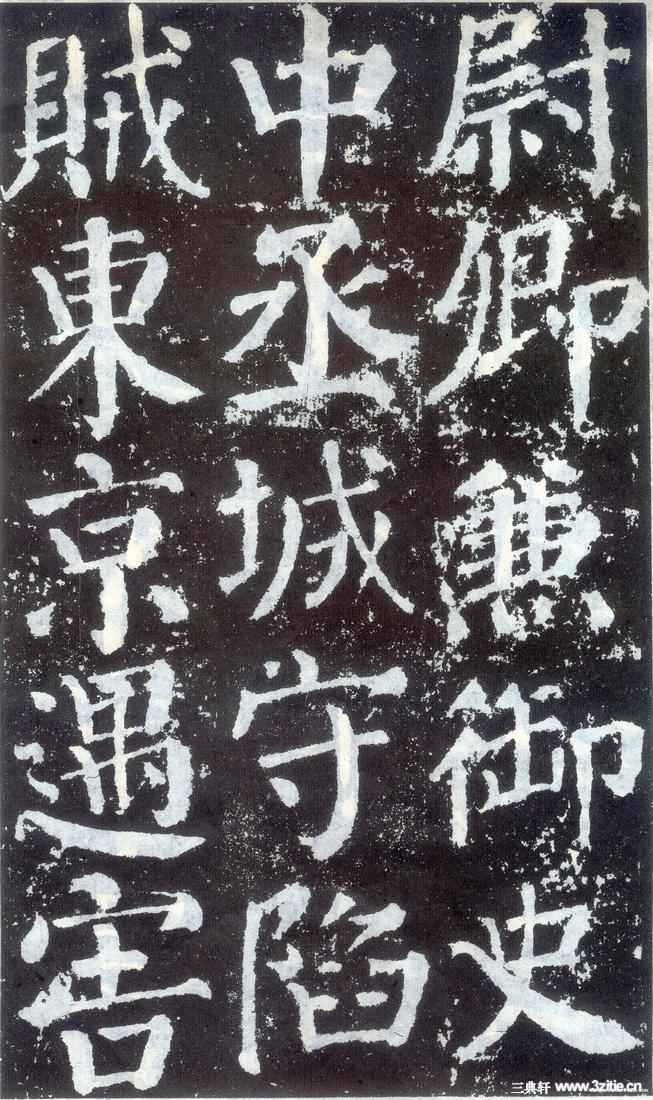 尉卿兼御史
中丞城守陷
賊東京遇害
三典轩 www.3zitie.cn